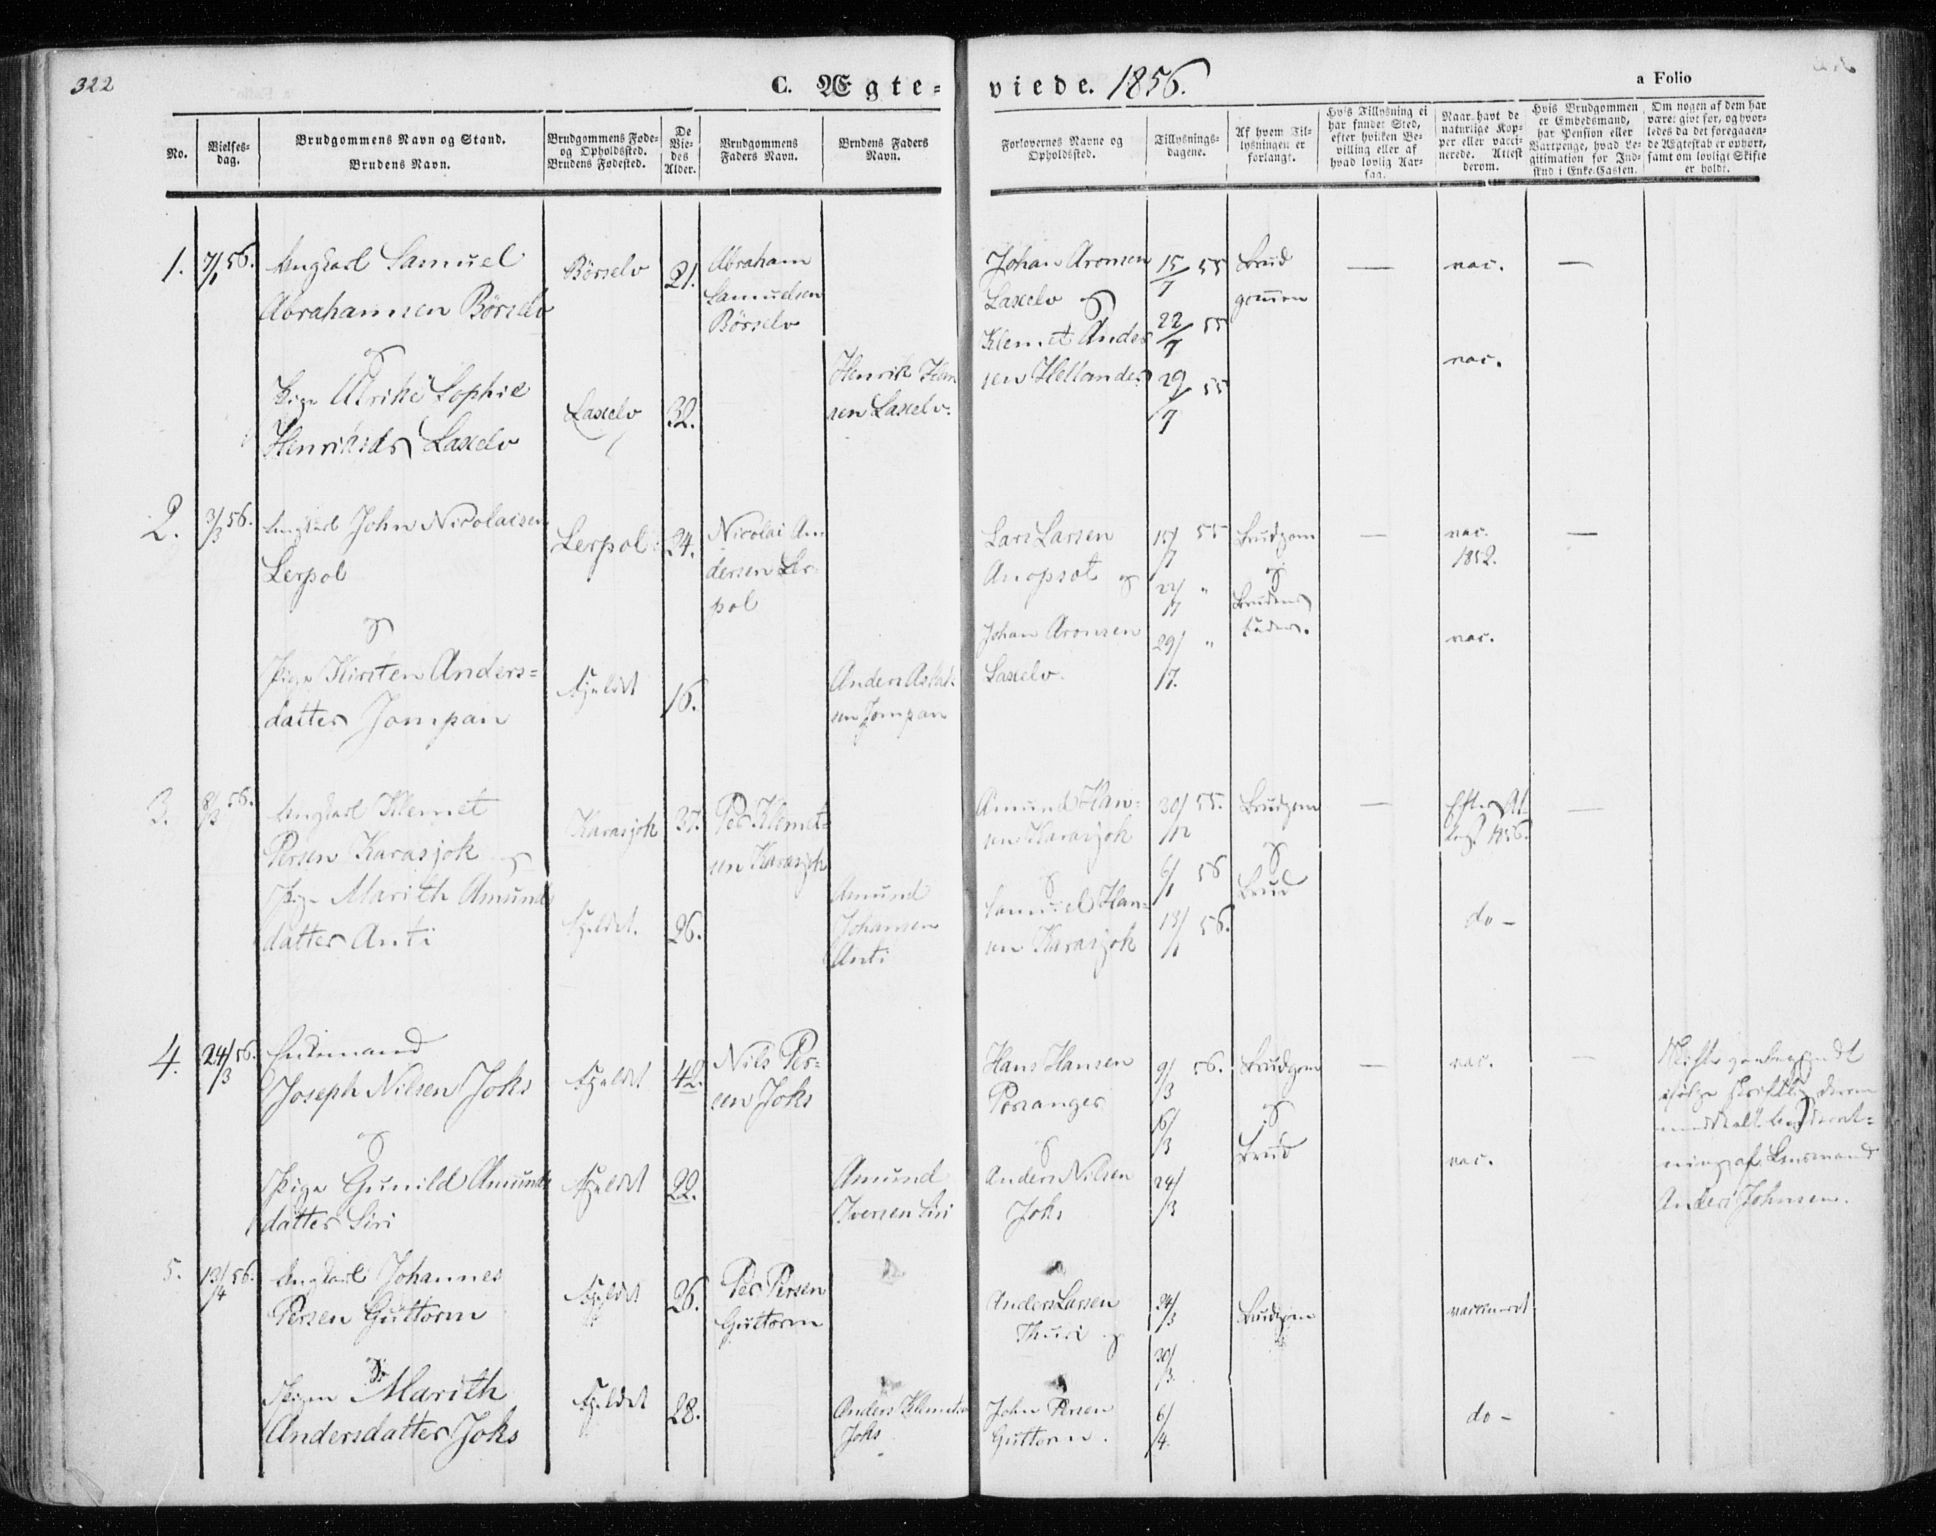 322
C. Ægte-
viede. 1856.
a Folio
No.
Vielses-
dag.
Brudgommens Navn og Stand.
Brudens Navn.
Brudgommens Føde-
og Opholdssted.
Brudens Fødested.
De
Vie-
des
Alder.
Brudgommens
Faders Navn.
Brudens Faders
Navn.
Forlovernes Navne og
Opholdssted.
Tillysnings-
dagene.
Af hvem Til-
lysningen er
forlangt.
Hvis Tillysning ei
har fundet Sted,
efter hvilken Be-
villing eller af
hvad lovlig Aar-
sag.
Naar havt de
naturlige Kop-
per eller vacci-
nerede. Attest
derom.
Hvis Brudgommen
er Embedsmand,
har Pension eller
Vartpenge, hvad Le-
gitimation for Ind-
skud i Enke-Cassen.
Om nogen af dem har
været givt før, og hvor-
ledes da det foregaaen-
de Ægteskab er ophørt,
samt om lovligt Skifte
er holdt.
1.
7/1 56.
Ungkarl Samuel
Abrahamsen Börselv
og
Pige Ulrike Sophie
Henriksdr Laxelv
Börselv
Laxelv
21.
32.
Abraham
Samuelsen
Börselv
Henrik
sen Laxelv.
Johan Aronsen
Laxelv og
Klemet Anders
sen Hellander
15/7 55
22/7 55
29/7 55
Brud
gommen
—
vac.
vac.
—
2.
3/3 56.
Ungkarl John Nicolaisen
Lerpol
og
Pige Kirsten Anders-
datter Jompan
Lerpol
Fjeldet
24.
16.
Nicolai An-
dersen Ler-
pol
Anders
sen Jompan
Lars Larsen
Anopsot og
Johan Aronsen
Laxelv.
55
22/
29/
Brudgom
og
Brudens
Fader.
—
vac.
1852.
vac.
—
3.
56.
Ungkarl Klemet
Persen Karasjok og
Pige Marith Amunds
datter Anti
Karasjok
Fjeldet.
37.
26.
Per Klemet-
sen Karasjok
Amund
Johansen
Anti
Amund Han-
sen Karasjok
og
Samuel Han-
sen Karasjok
30/12 55.
6/1 56
13/1 56.
Brudgom
og
Brud
—
Efter At-
test 1856.
do –
—
4.
24/3 56.
Enkemand
Joseph Nilsen Joks
og
Pige Gunild Amunds
datter Siri
Fjeldet
Fjeldet
42.
22.
Nils Per-
sen Joks
Amund
Iversen Siri
Hans Hansen
Porsanger
og
Anders Nilsen
Joks
9/3 56.
16/3
24/3
Brudgom
og
Brud
—
vac.
vac.
—
Skifte
ifølge skriftlig derom
meddelt
ning af Lensmand
Anders Johnsen.
5.
13/4 56.
Ungkarl Johannes
Persen Guttorm
og
Pigen Marith
Andersdatter Joks
Fjeldet
Fjeldet
26.
28.
Per Persen
Guttorm
Anders Klemetsen
Joks
Anders Larsen
Thuri og
John Persen
Guttorm.
24/3
30/3
6/4
Brudgom
vaccineret
do –